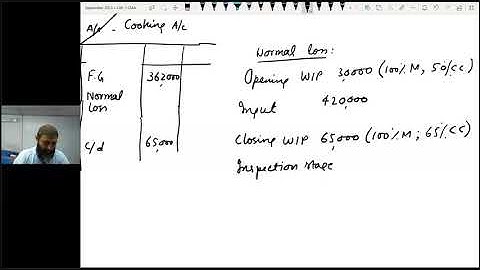 A/c - Cooking A/c
F.G 362000
Normal Loss
c/d 65,000
Normal loss:
Opening WIP 30000 (100% M, 50% CC)
Input 420,000
Closing WIP 65000 (100% M; 65% CC)
Inspection stage